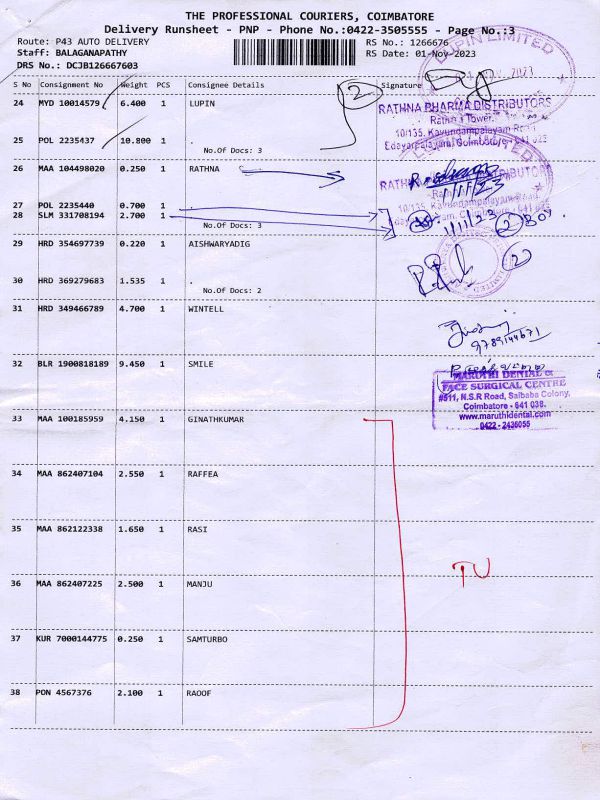 THE PROFESSIONAL COURIERS, COIMBATORE
Delivery Runsheet - PNP - Phone No.:0422-3505555 - Page No.:3
Route: P43 AUTO DELIVERY RS No.: 1266676
Staff: BALAGANAPATHY RS Date: 01-Nov-2023
DRS No.: DCJB126667603
S No Consignment No Weight PCS Consignee Details Signature
2
LUPIN LIMITED
24 MYD 10014579 6.400 1 LUPIN
RATHNA PHARMA DISTRIBUTORS
10/135, Kavundampalayam Road
25 POL 2235437 10.800 1 .
No.Of Docs: 3
26 MAA 104498020 0.250 1 RATHNA
1/11/23
27 POL 2235440 0.700 1
28 SLM 331708194 2.700 1 .
No.Of Docs: 3
1/11/23 2 Box
29 HRD 354697739 0.220 1 AISHWARYADIG
2
30 HRD 369279683 1.535 1 .
No.Of Docs: 2
31 HRD 349466789 4.700 1 WINTELL
9789144671
32 BLR 1900818189 9.450 1 SMILE
MARUTHI DENTAL &
FACE SURGICAL CENTRE
#511, N.S.R Road, Saibaba Colony,
Coimbatore - 641 038.
www.maruthidental.com
0422 - 2436055
33 MAA 100185959 4.150 1 GINATHKUMAR
34 MAA 862407104 2.550 1 RAFFEA
35 MAA 862122338 1.650 1 RASI
TU
36 MAA 862407225 2.500 1 MANJU
37 KUR 7000144775 0.250 1 SAMTURBO
38 PON 4567376 2.100 1 RAOOF